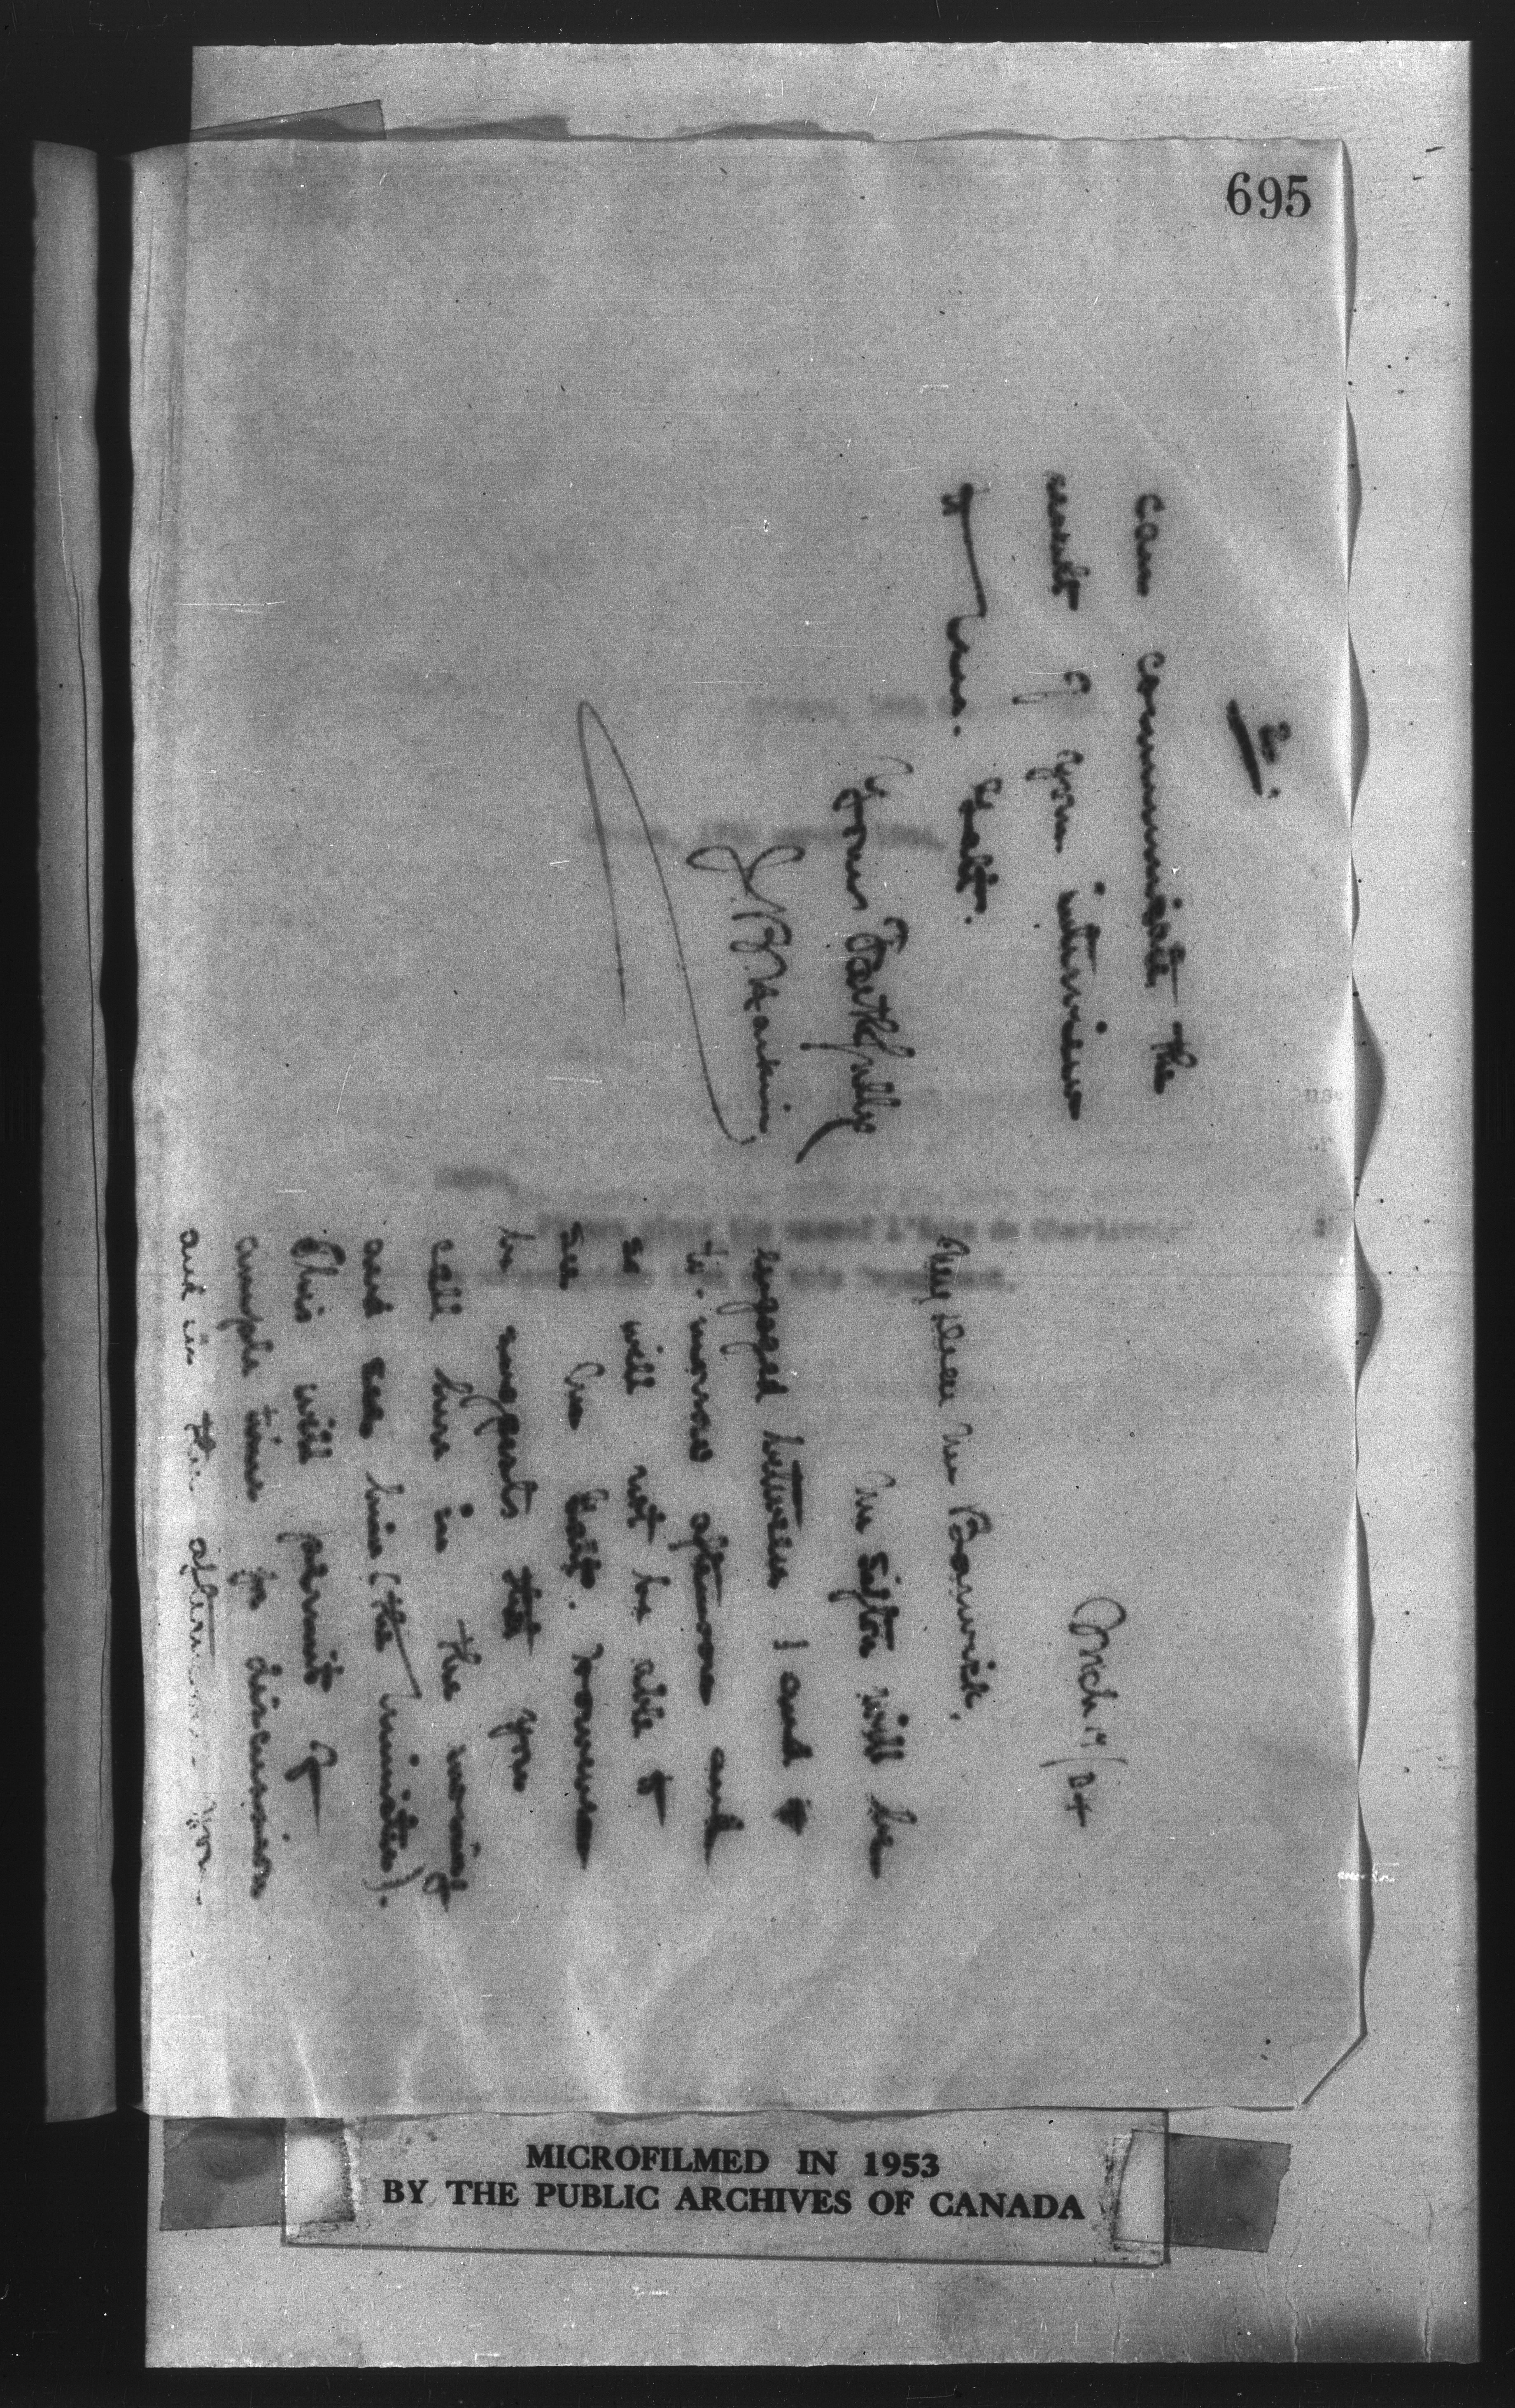 695
Mch 17/04
My dear Mr Barwick,
Mr Sifton will be
engaged between 1 and 4
to-morrow afternoon and
so will not be able to
see Mr Tait. However
he suggests that you
call him in the morning
and see him (the minister).
This will permit of
ample time for discussion
and in the afternoon you
2.
can communicate the
result of your interview
to Mr Tait.
Yours Faithfully
J. B. Harkin
MICROFILMED IN 1953
BY THE PUBLIC ARCHIVES OF CANADA